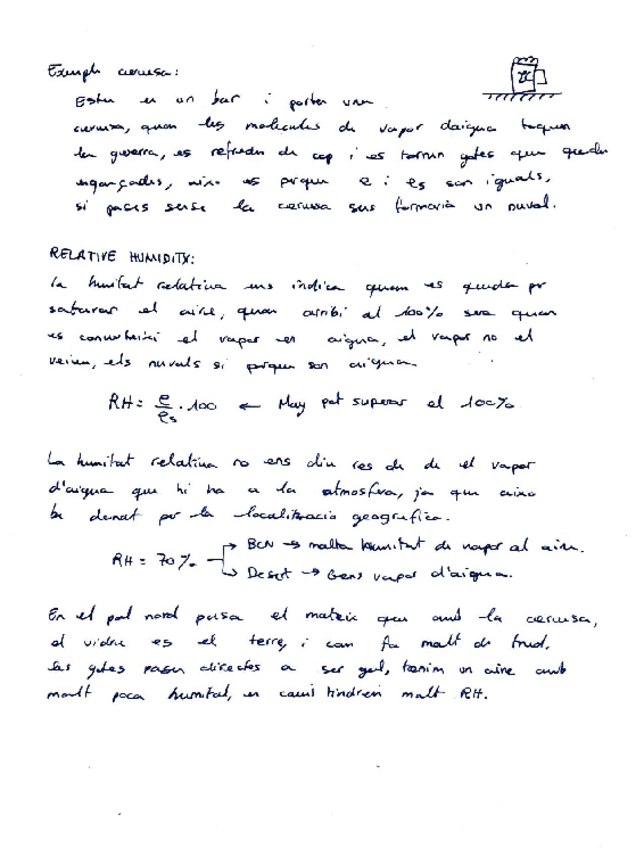 Exemple cervesa:
Esteu en un bar i porten una
cervesa, quan les molecules de vapor daigua toquen
la gerra, es refreden de cop i es tornen gotes que queden
enganxades, aixo es perque e i es son iguals,
si passes sense la cervesa sens formaria un nuvol.
RELATIVE HUMIDITY:
La humitat relativa ens indica quan es queda per
saturar el aire, quan arribi al 100% sera quan
es converteixi el vapor en aigua, el vapor no el
veiem, els nuvols si perque son aigua.
RH = e/es · 100 ← May pot superar el 100%
La humitat relativa no ens diu res de de el vapor
d'aigua que hi ha a la atmosfera, ja que aixo
be donat per la localitzacio geografica.
RH = 70% → BCN → molta humitat de vapor al aire.
→ Desert → Gens vapor d'aigua.
En el pol nord passa el mateix que amb la cervesa,
el vidre es el terre, i com fa molt de fred,
les gotes pasen directes a ser gel, tenim un aire amb
molt poca humitat, en canvi tindrem molt RH.